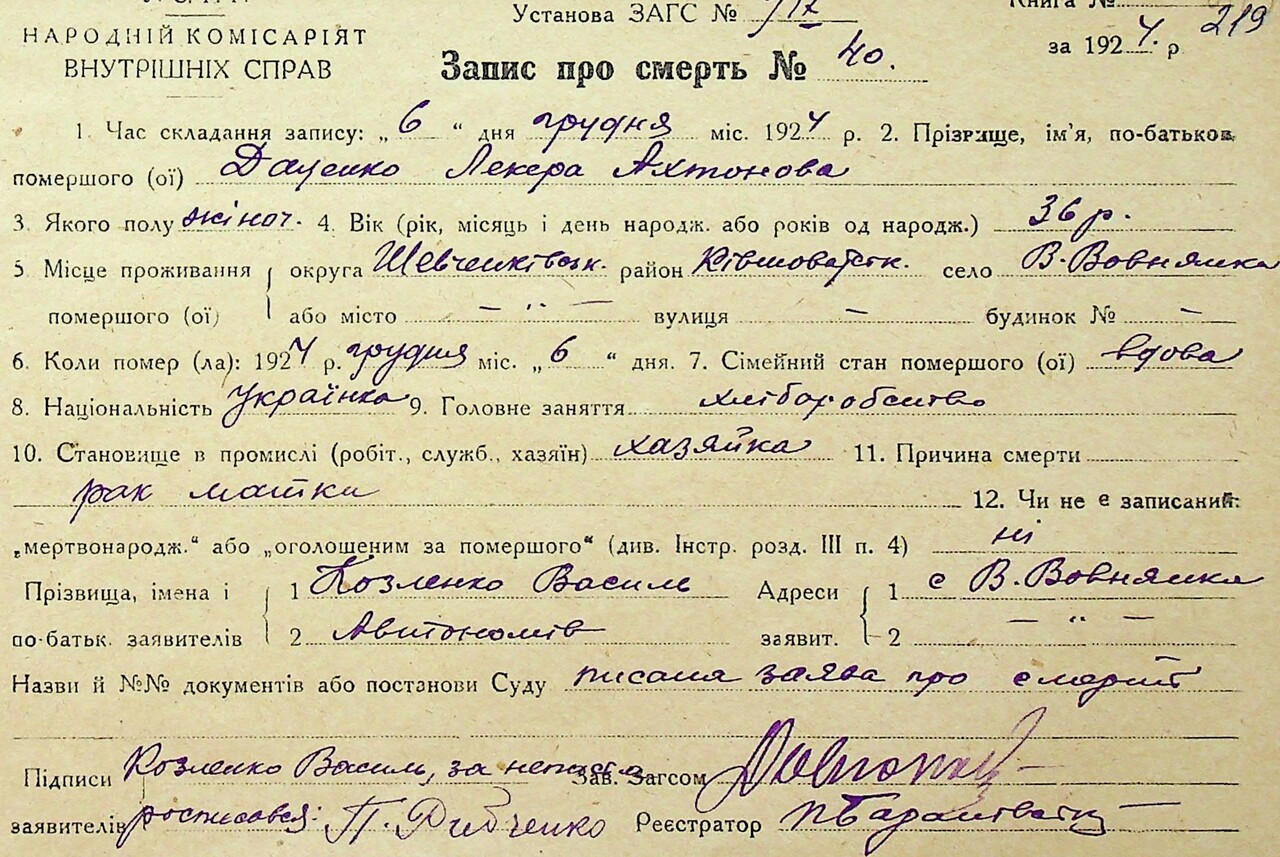 Установа ЗАГС №
Книга №
219
НАРОДНІЙ КОМІСАРІЯТ
за 1924 р
ВНУТРІШНІХ СПРАВ
Запис про смерть № 40.
1. Час складання запису: „6“ дня грудня міс. 1924 р. 2. Прізвище, ім'я, по-батьков.
помершого (ої) Даценко Лекера Ахтонова
3. Якого полу жіноч. 4. Вік (рік, місяць і день народж. або років од народж.) 36 р.
5. Місце проживання округа Шевченківськ. район Ківшоватськ. село В. Вовнянка
помершого (ої) або місто — „ — вулиця — будинок № —
6. Коли помер (ла): 1924 р. грудня міс. „6“ дня. 7. Сімейний стан помершого (ої) вдова
8. Національність Українка 9. Головне заняття хліборобство
10. Становище в промислі (робіт., служб., хазяїн) хазяйка 11. Причина смерти
рак матки 12. Чи не є записаний:
„мертвонародж.“ або „оголошеним за помершого“ (див. Інстр. розд. III п. 4) ні
Прізвища, імена і 1 Козленко Василь Адреси 1 с В. Вовнянка
по-батьк. заявителів 2 Автономів заявит. 2 — „ —
Назви й №№ документів або постанови Суду писана заява про смерть
Підписи Козленко Василь, за Зав. Загсом
заявителів росписовся: П. Рибченко Реєстратор